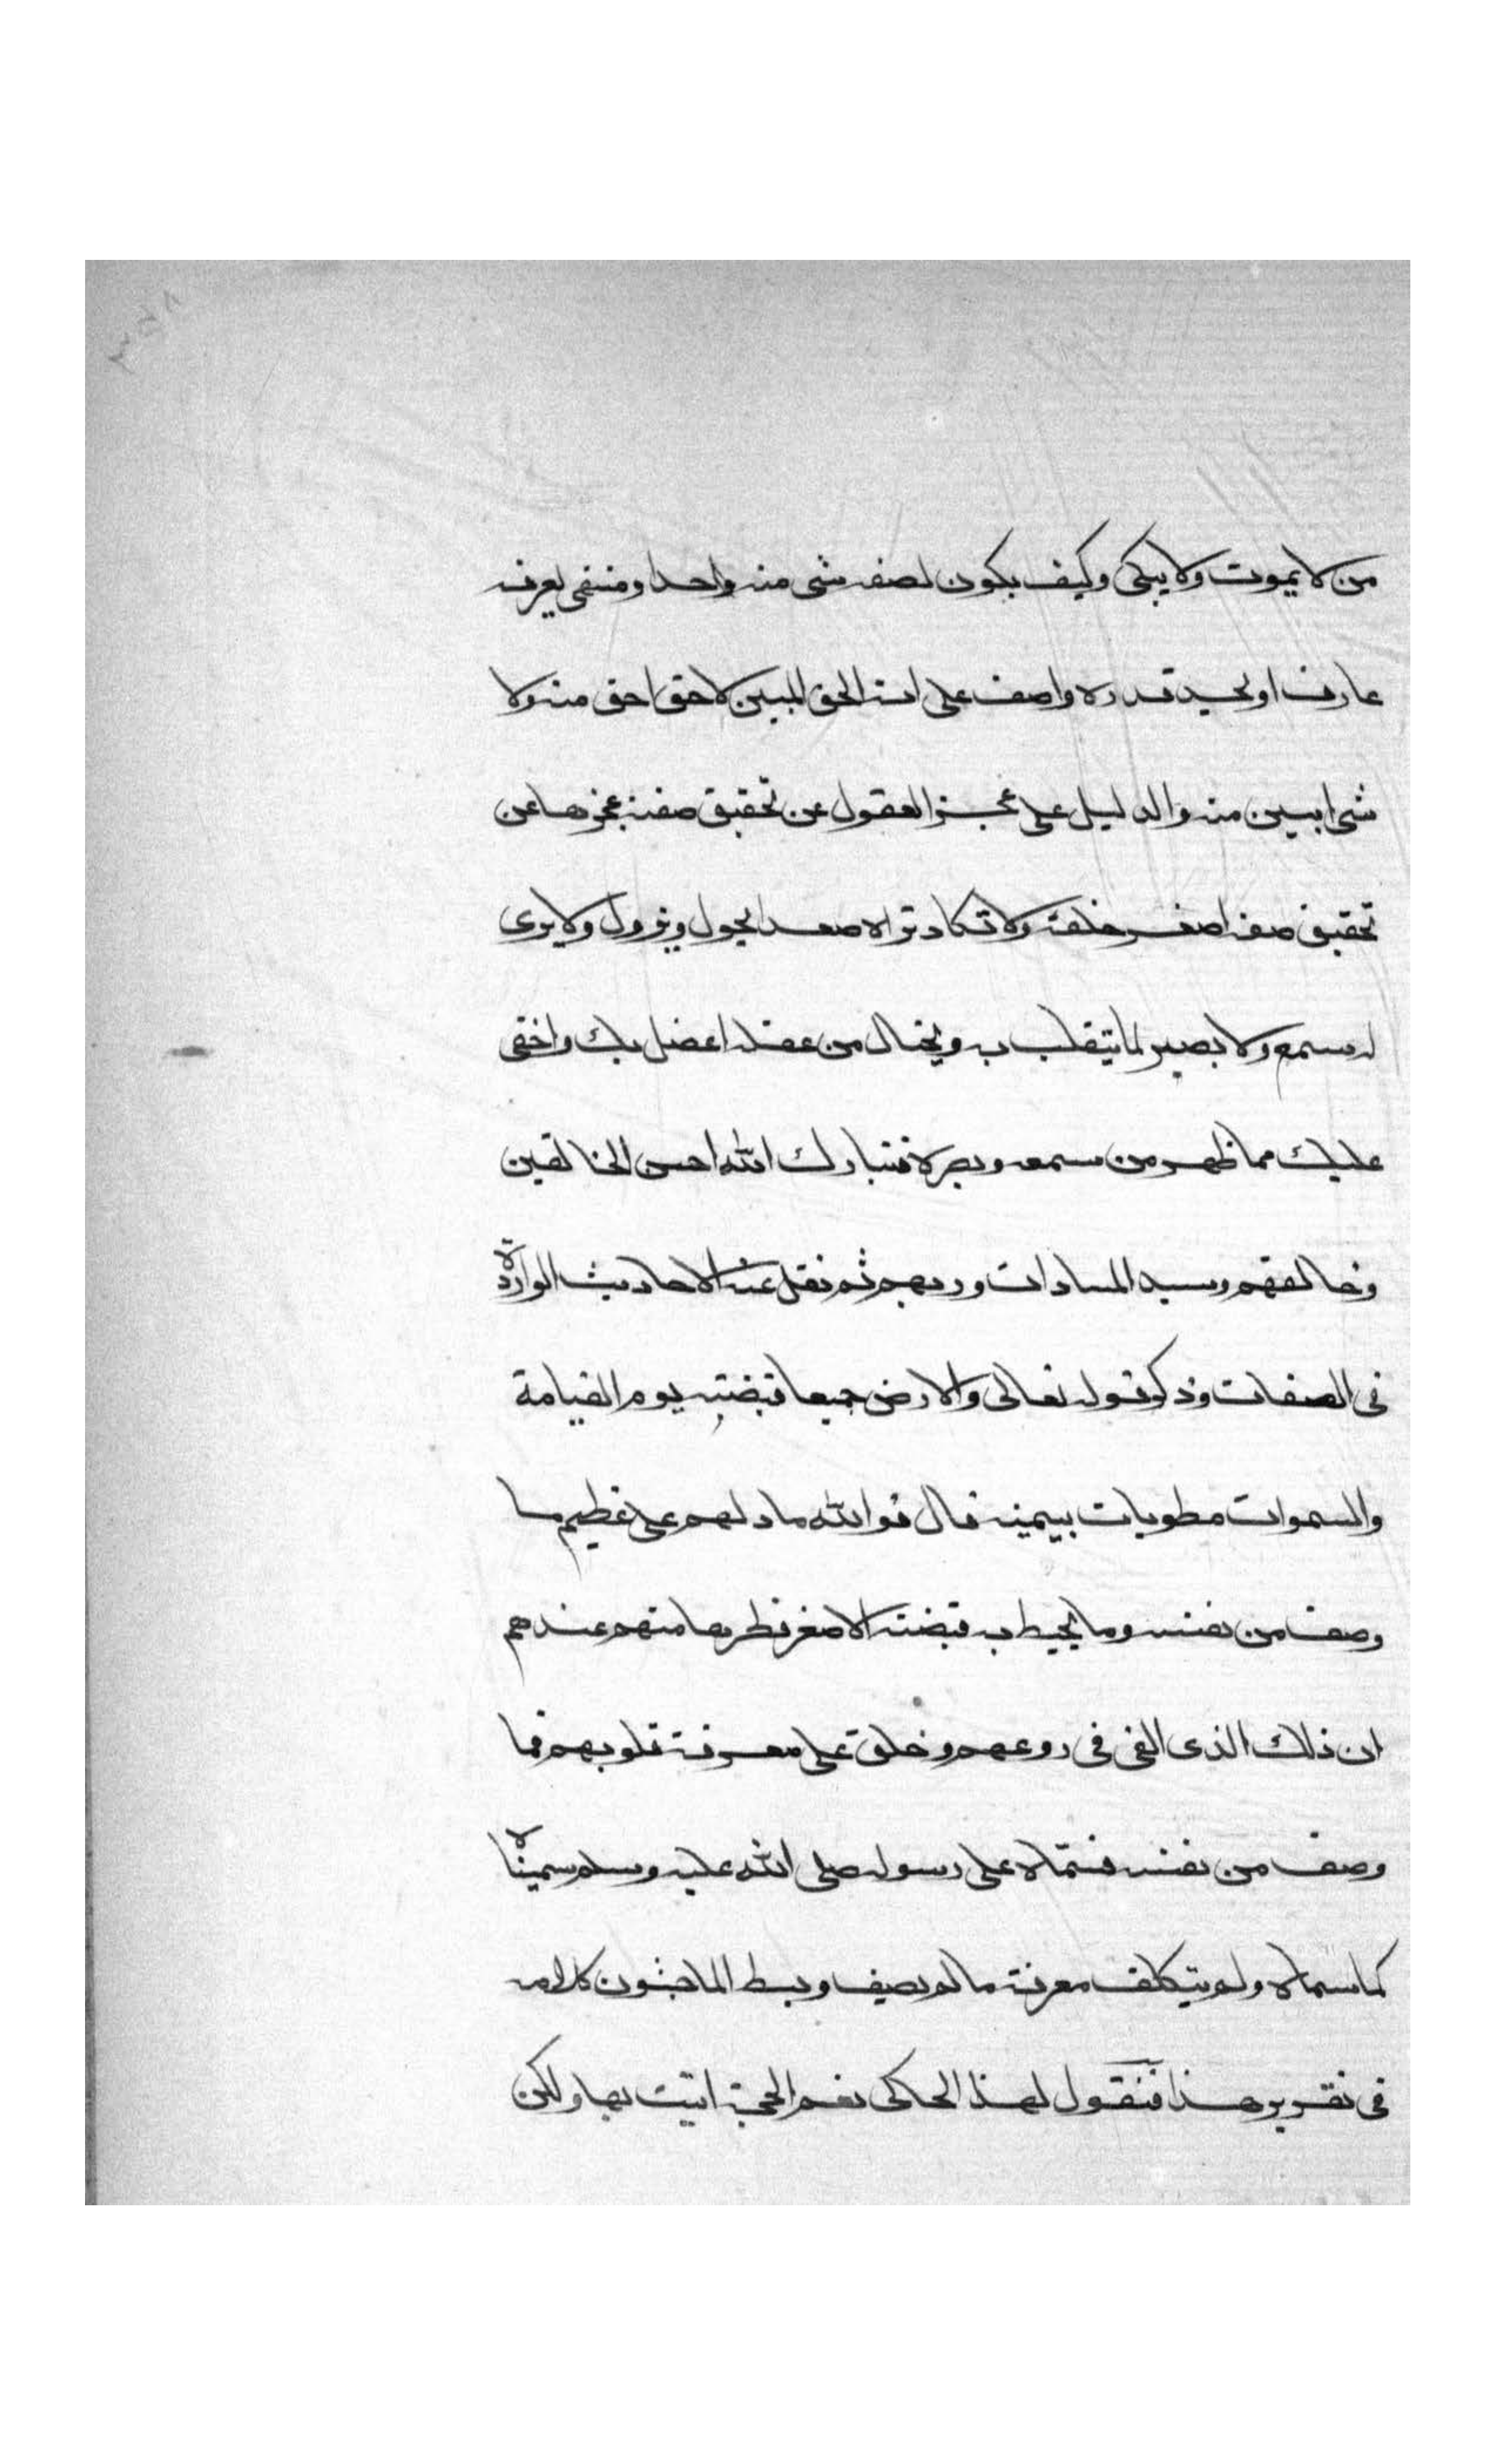 من لا يموت ولا يبلى وكيف يكون لصفه شى منه واحدا ومنفى يعرفه
عارف او يحيد قدره واصف على انه الحق المبين لا حق احق منه ولا
شى ابين منه والدليل على عجز العقول عن تحقيق صفته عجزها عن
تحقيق صفه اصغر خلقه ولا تكاد تراه صعدا يحول ويزول ولا يرى
له سمع ولا بصير لما يتقلب به ويختال من عقله اعضل بك واخفى
عليك مما ظهر من سمعه وبصره فتبارك الله احسن الخالقين
وخالقهم وسيد السادات وربهم ثم نقل عنه الاحاديث الواردة
فى الصفات وذكر قوله تعالى والارض جميعا قبضته يوم القيامة
والسموات مطويات بيمينه قال فوالله ما دلهم على عظيم ما
وصف من نفسه وما يحيط به قبضته الا صغر نظرها منهم عندهم
ان ذلك الذى القى فى روعهم وخلق على معرفة قلوبهم فما
وصف من نفسه فسماه على رسوله صلى الله عليه وسلم سميناه
كما سماه ولم يتكلف معرفة ما لم يصف وبسط الماجشون كلامه
فى تقرير هذا فنقول لهذا الحاكى نعم الحجة اتيت بها ولكن